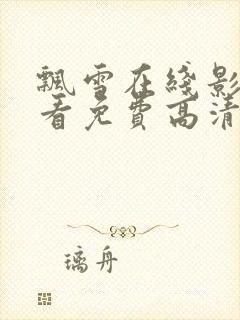 飘雪在线影
看免费高清
璃舟